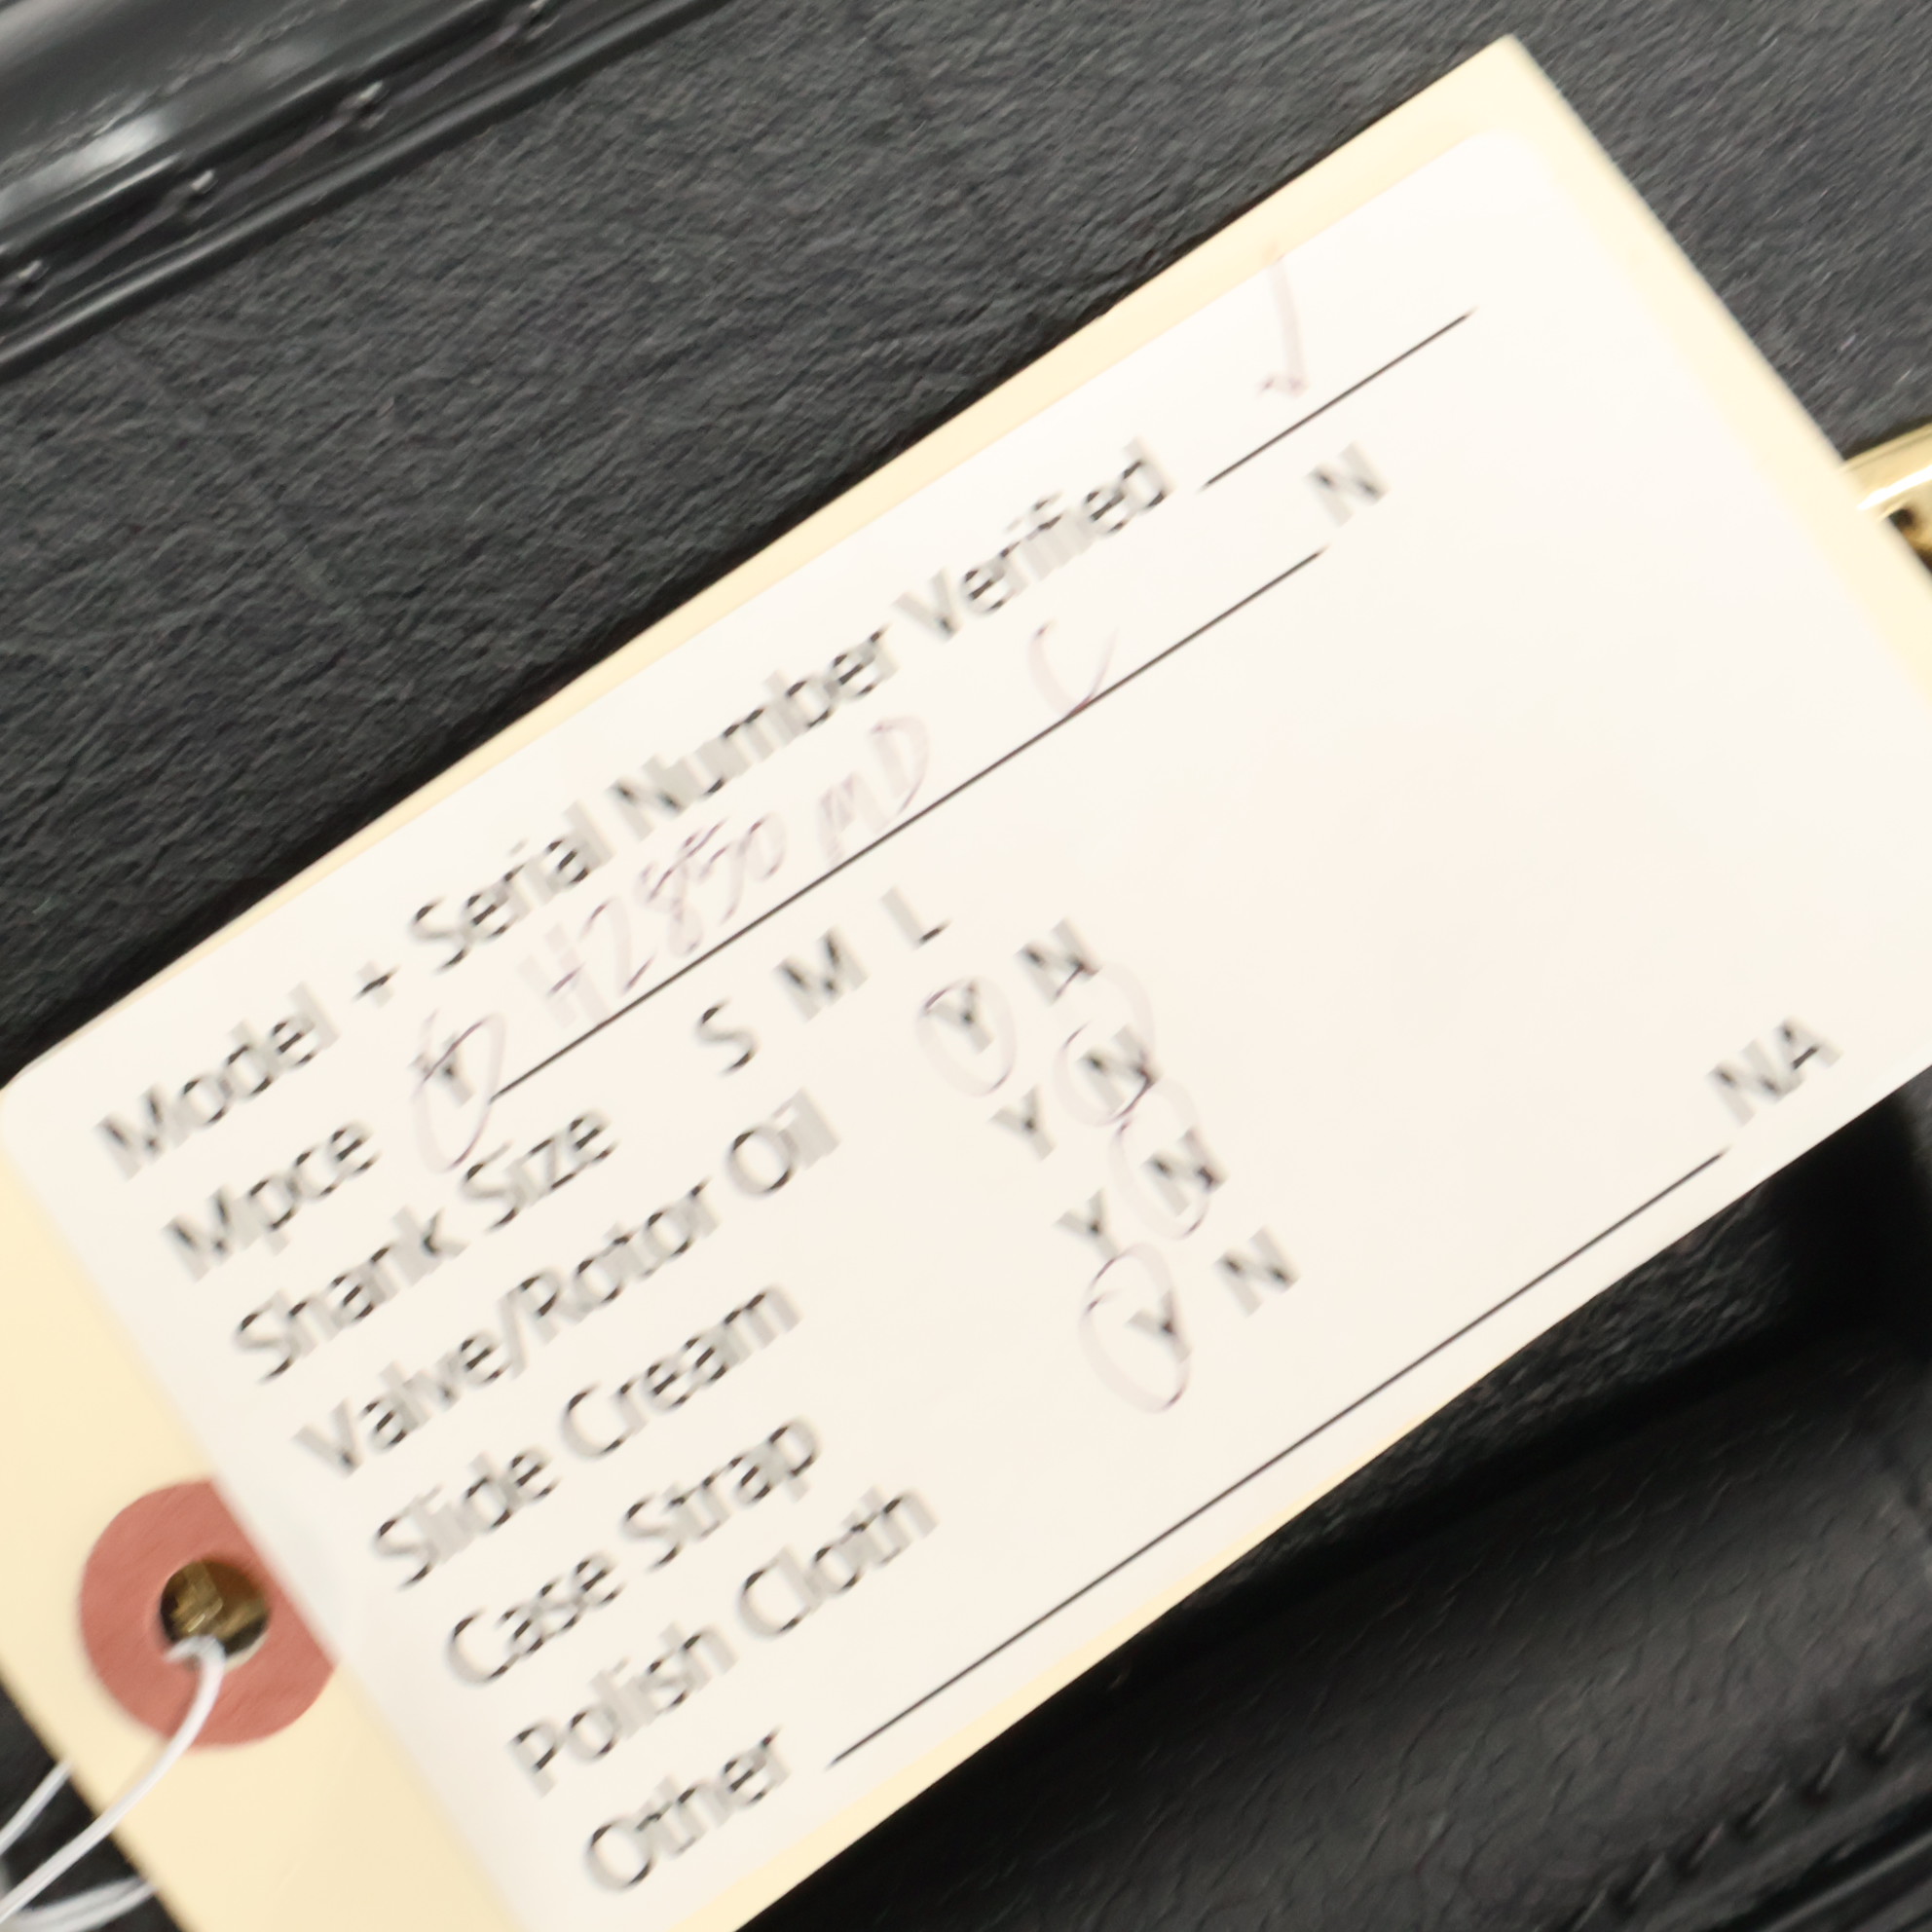 Model + Serial Number Verified ✓
Mpce Y H2850 MD C N
Shank Size S M L
Valve/Rotor Oil Y N
Slide Cream Y N
Case Strap Y N
Polish Cloth Y N
Other NA